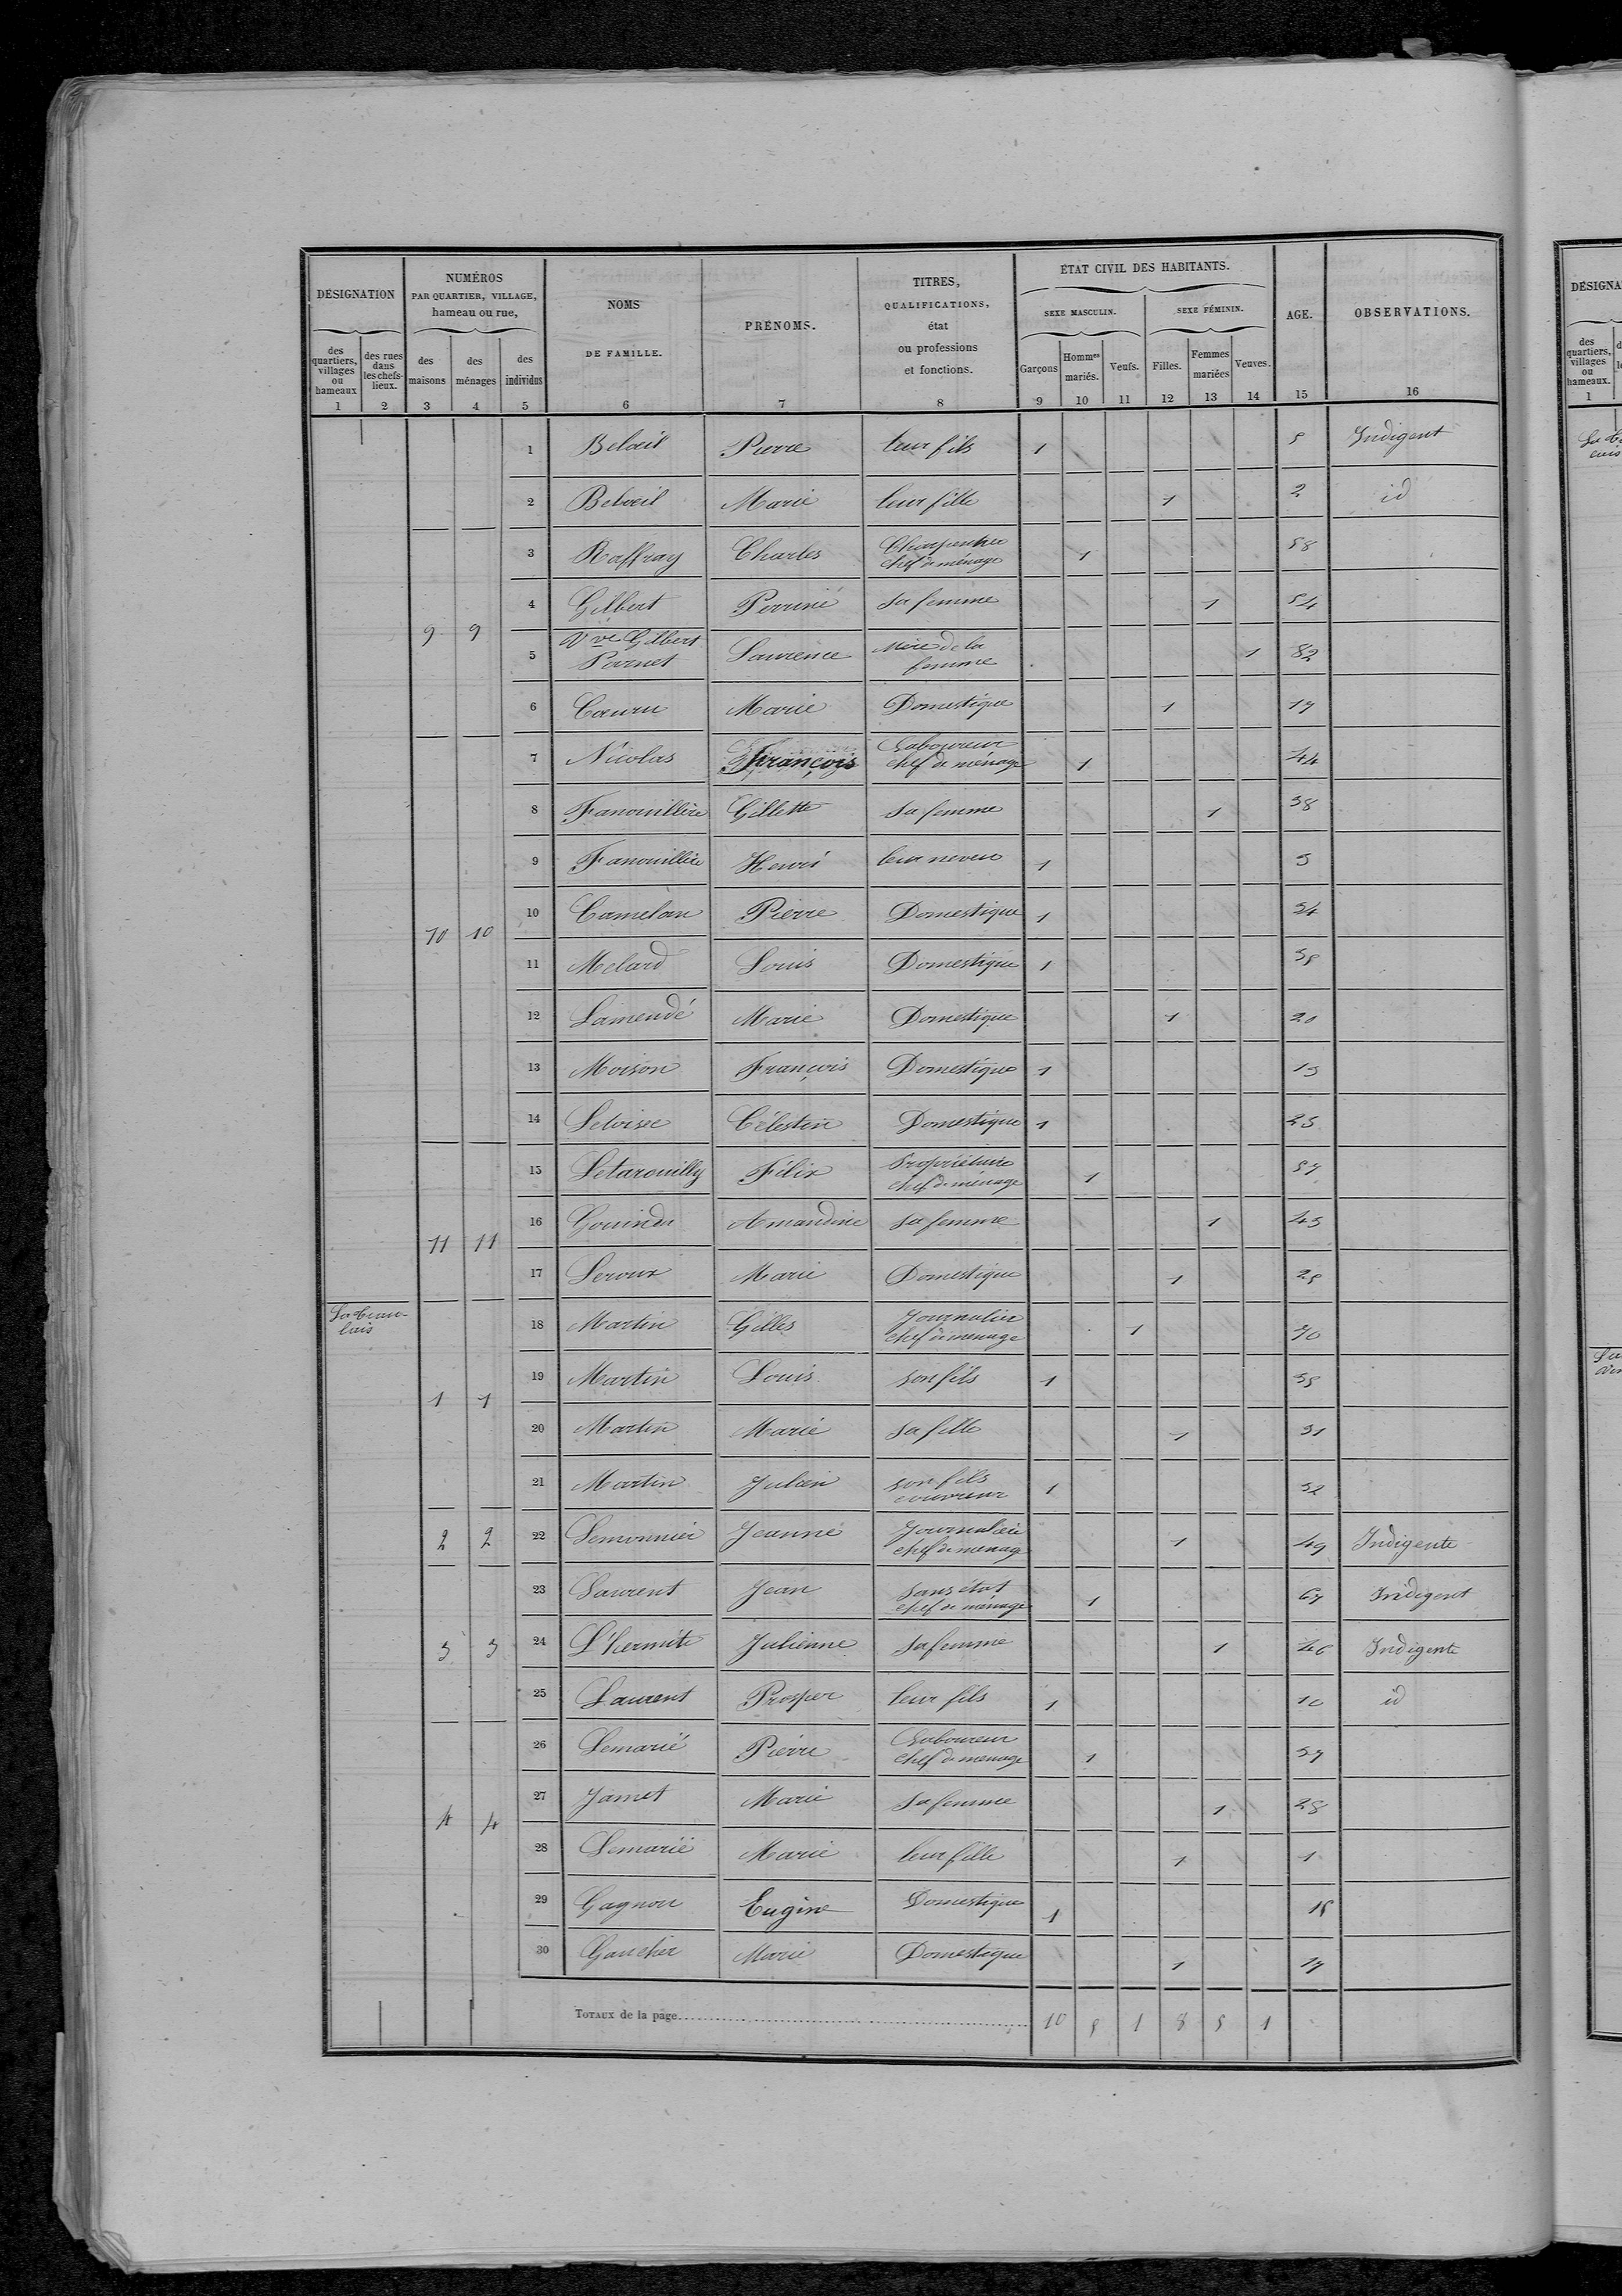 DÉSIGNATION
NUMÉROS
PAR QUARTIER, VILLAGE,
hameau ou rue,
NOMS
DE FAMILLE.
PRÉNOMS.
TITRES,
QUALIFICATIONS,
état
ou professions
et fonctions.
ÉTAT CIVIL DES HABITANTS.
SEXE MASCULIN.
SEXE FÉMININ.
AGE.
OBSERVATIONS.
des quartiers, villages ou hameaux
des rues dans les chefs-lieux.
des maisons
des ménages
des individus
Garçons
Hommes mariés.
Veufs.
Filles.
Femmes mariées
Veuves.
1 2 3 4 5 6 7 8 9 10 11 12 13 14 15 16
1 Belœil Pierre leur fils 1 5 Indigent
2 Belœil Marie leur fille 1 2 id
3 Raffray Charles Charpentier chef de ménage 1 58
4 Gilbert Perrine sa femme 1 54
9 9
5 Vve Gilbert Parnet Laurence Mère de la femme 1 82
6 Cœuru Marie Domestique 1 17
7 Nicolas François Laboureur chef de ménage 1 44
8 Fanouillère Gillette sa femme 1 38
9 Fanouillère Henri leur neveu 1 3
10 Camelan Pierre Domestique 1 34
10 10
11 Melard Louis Domestique 1 35
12 Lamendé Marie Domestique 1 20
13 Moison François Domestique 1 13
14 Letoisec Célestin Domestique 1 23
15 Letarouilly Félix Propriétaire chef de ménage 1 57
16 Amandine sa femme 1 43
11 11
17 Leroux Marie Domestique 1 25
18 Martin Gilles Journalier chef de ménage 1 70
19 Martin Louis son fils 1 35
1 1
20 Martin Marie sa fille 1 31
21 Martin Julien son fils couvreur 1 32
2 2 22 Lemonnier Jeanne Journalière chef de ménage 1 49 Indigente
23 Laurent Jean sans état chef de ménage 1 67 Indigent
3 3 24 L'hermite Julienne sa femme 1 46 Indigente
25 Laurent Prosper leur fils 1 10 id
26 Lemarié Pierre Laboureur chef de ménage 1 37
27 Jamet Marie sa femme 1 28
4 4
28 Lemarié Marie leur fille 1 1
29 Gagnon Eugène Domestique 1 15
30 Gauchier Marie Domestique 1 17
TOTAUX de la page 10 5 1 8 5 1
DÉSIGNA
des quartiers, villages ou hameaux.
1